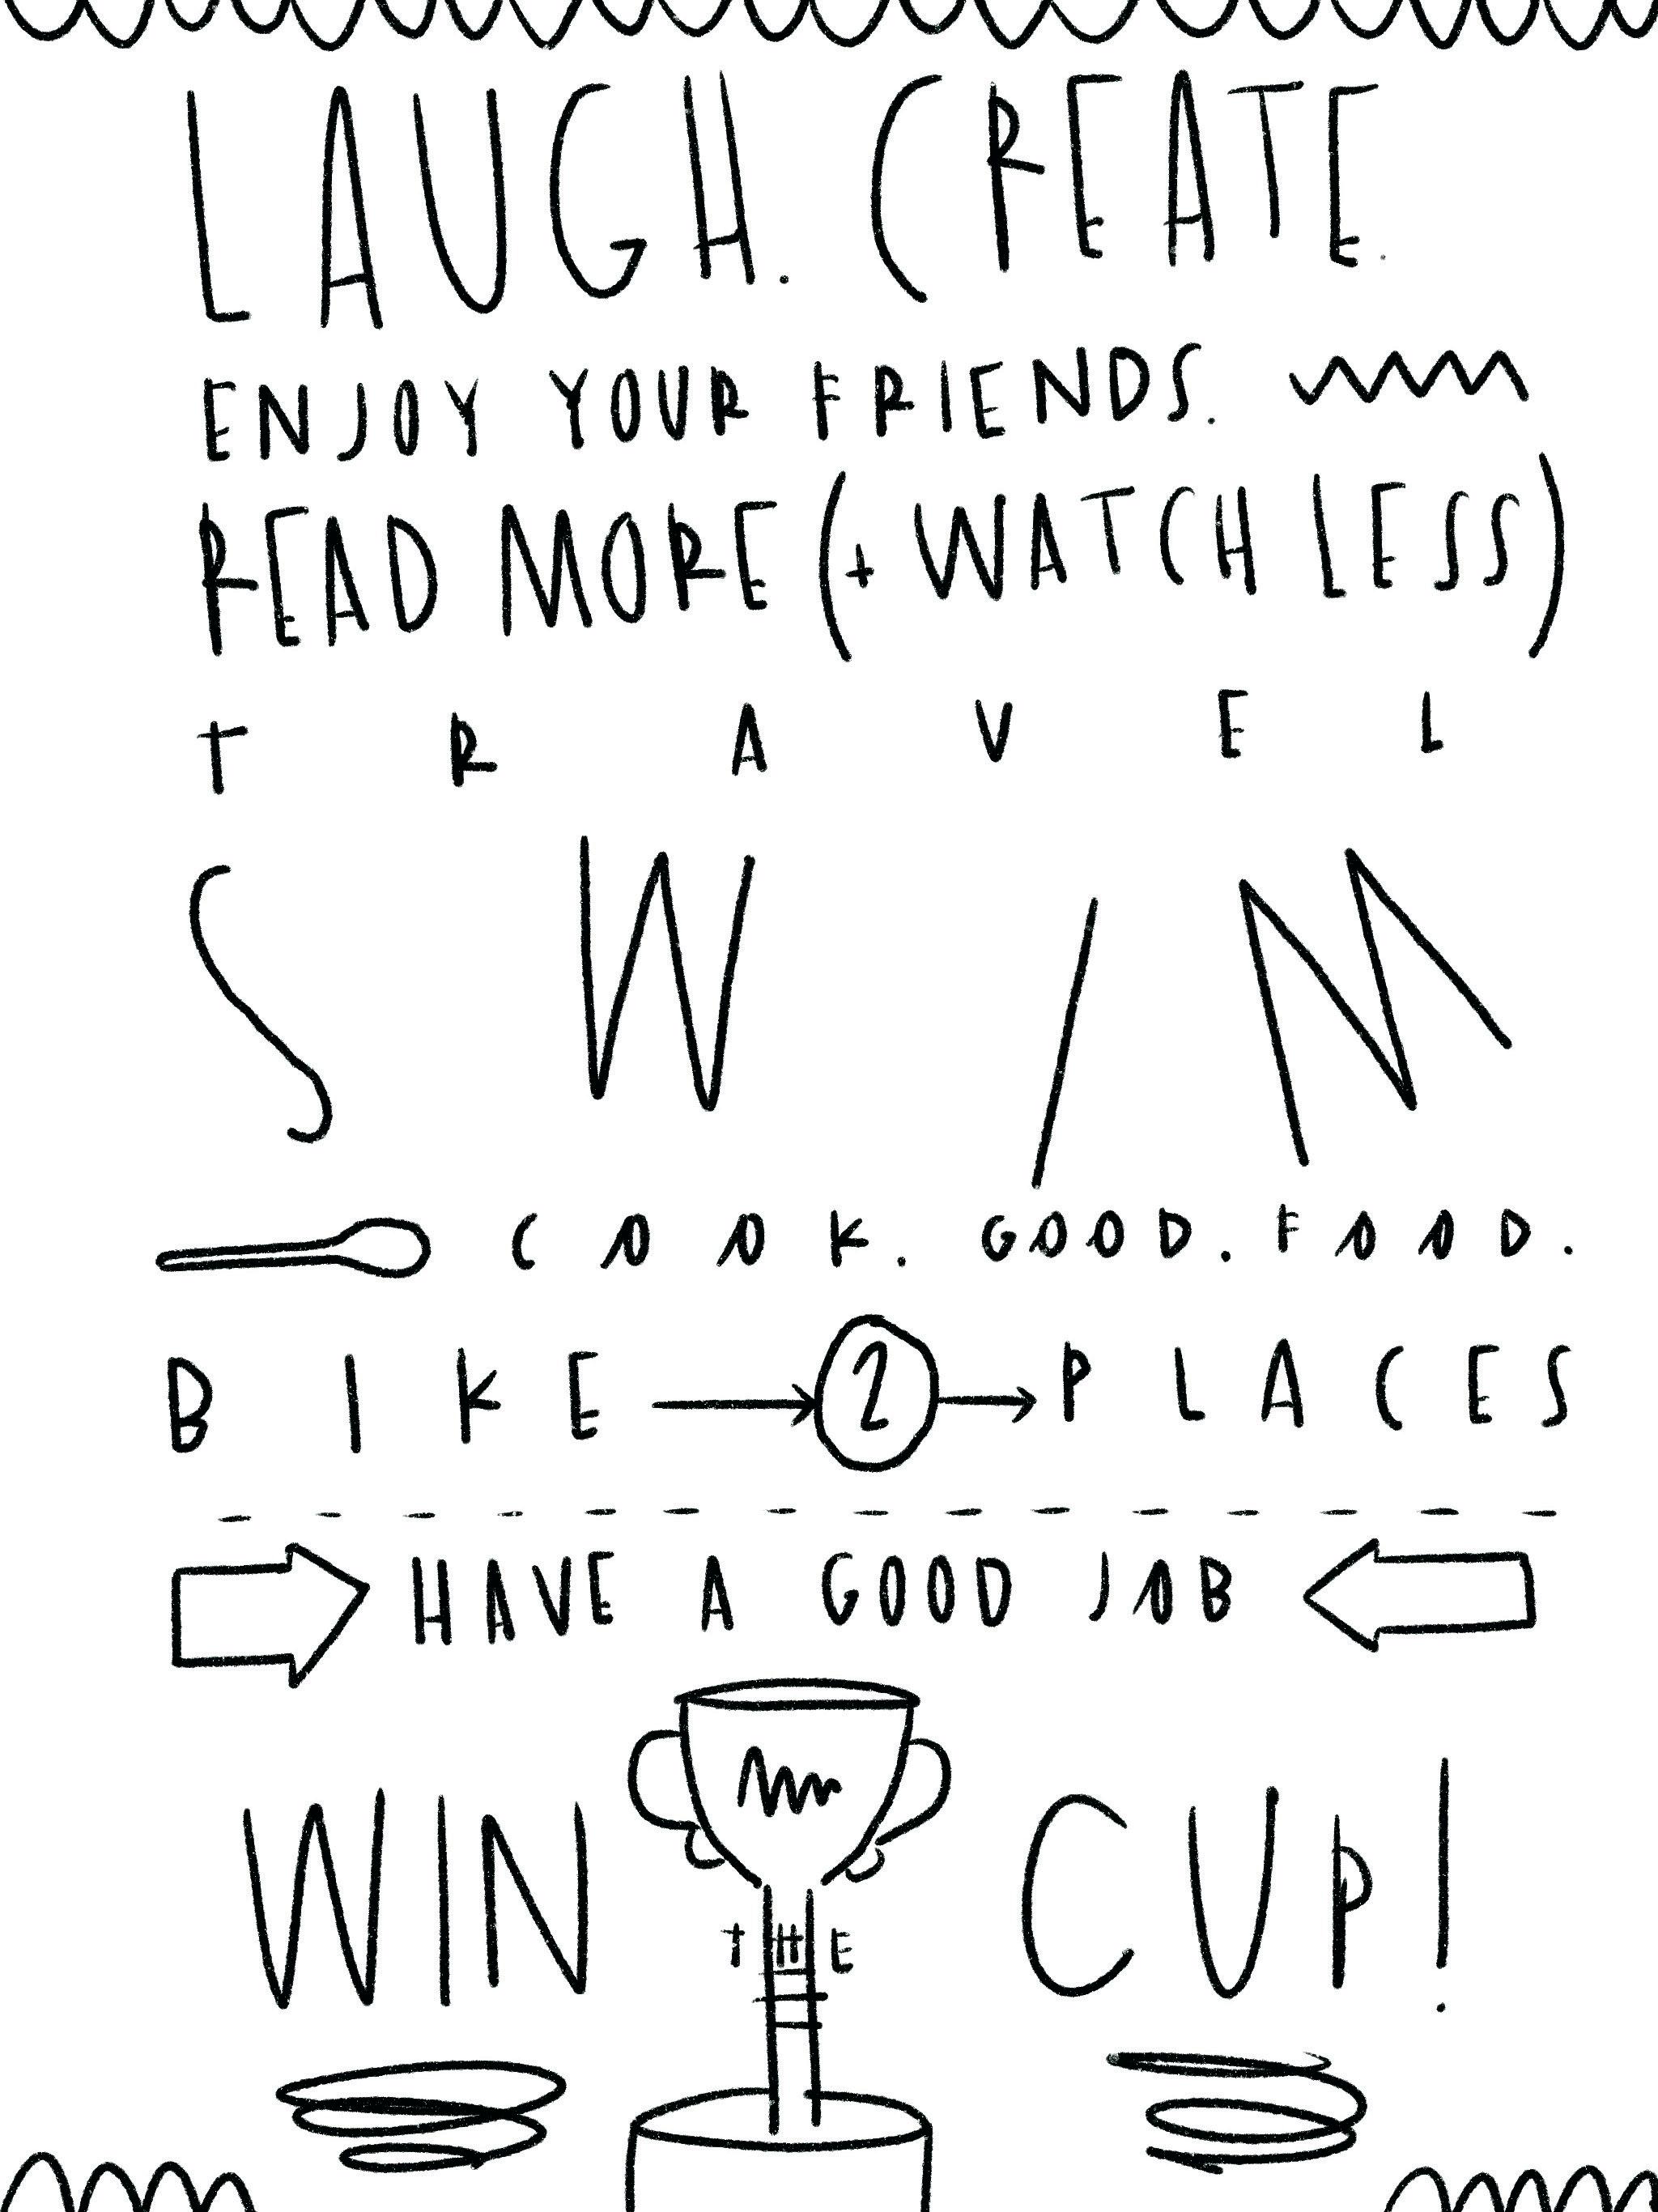 LAUGH. CREATE.
ENJOY YOUR FRIENDS.
READ MORE (+ WATCH LESS)
TRAVEL
SWIM
COOK. GOOD. FOOD.
BIKE → 2 → PLACES
HAVE A GOOD JOB
WIN THE CUP!